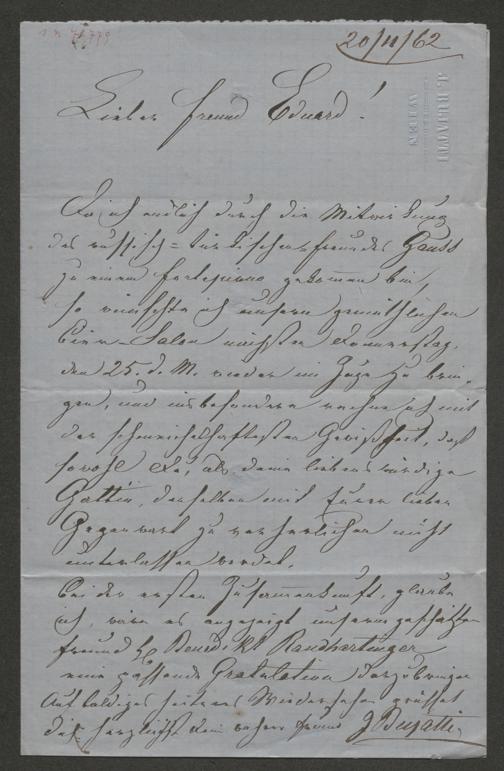 20/11/62
Lieber Freund Eduard!
Da ich endlich durch die Mitwirkung
des russisch=türkischen Freundes Gauss
zu einem Fortepiano gekommen bin,
so wünschte ich unsern gemüthlichen
Bier-Salon nächsten Donnerstag,
den 25. d. M. wieder im Zuge zu brin-
gen, und insbesondere rechne ich mit
der schmeichelhaftesten Gewißheit, daß
sowohl Du, als deine liebenswürdige
Gattin, denselben mit Eurer lieben
Gegenwart zu verherrlichen nicht
unterlassen werdet.
Bei der ersten Zusammenkunft, glaube
ich, wäre es angezeigt unserm geschätzten
Freund H. Benedikt Randhartinger
eine passende Gratulation darzubringen
Auf baldiges heiteres Wiedersehen grüsset
dich herzlichst dein wahrer Freund J Bujatti
J. BUJATTI
WIEN